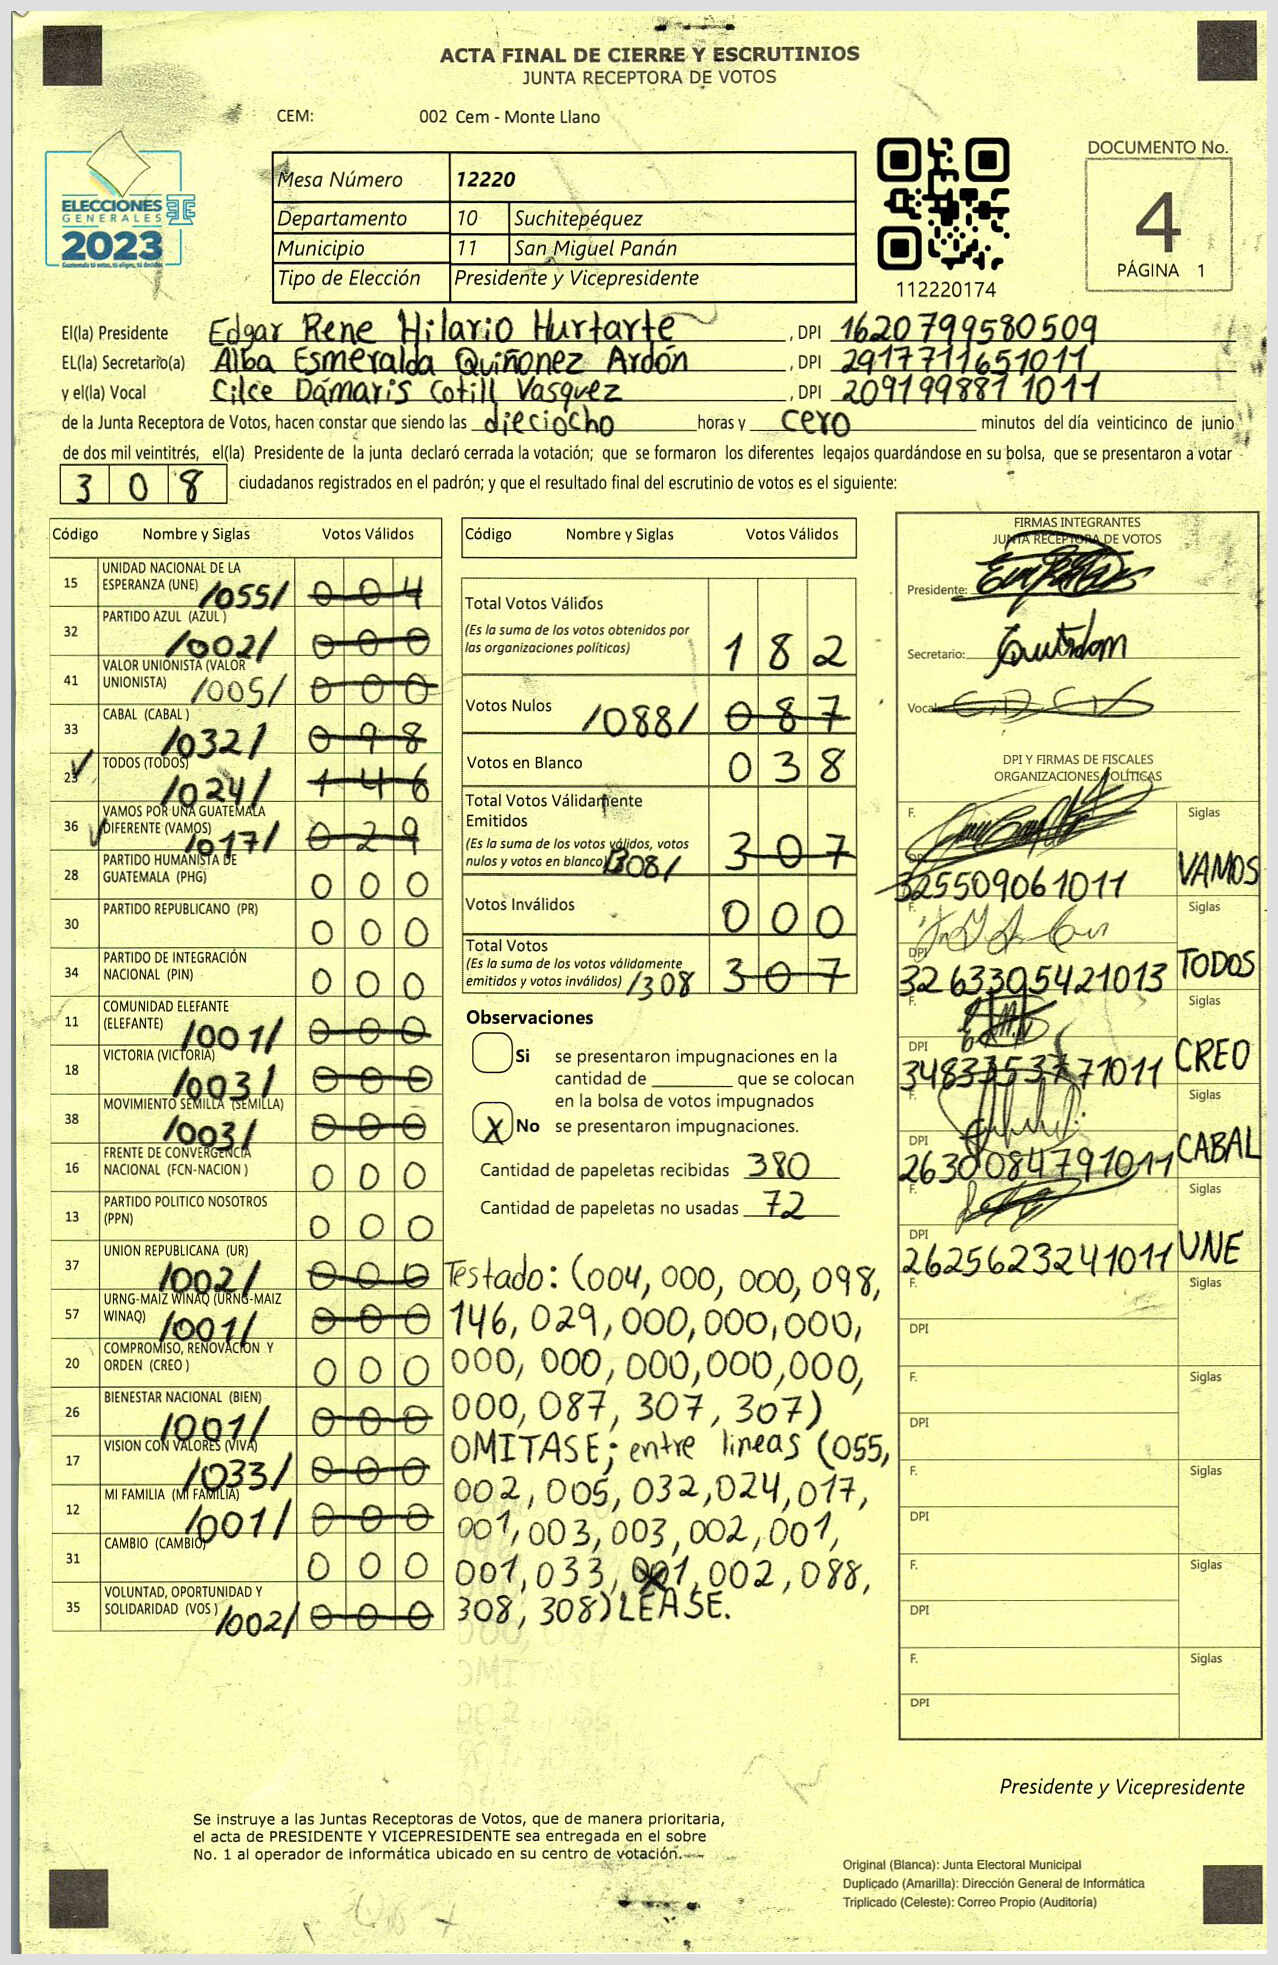 ACTA FINAL DE CIERRE Y ESCRUTINIOS
JUNTA RECEPTORA DE VOTOS
CEM: 002 Cem - Monte Llano
ELECCIONES
GENERALES
2023
Mesa Número 12220
Departamento 10 Suchitepéquez
Municipio 11 San Miguel Panán
Tipo de Elección Presidente y Vicepresidente
112220174
DOCUMENTO No.
4
PÁGINA 1
El(la) Presidente Edgar Rene Hilario Hurtarte , DPI 1620799580509
EL(la) Secretario(a) Alba Esmeralda Quiñonez Ardón , DPI 2917711651011
y el(la) Vocal Cilce Dámaris Cotill Vasquez , DPI 2091998811011
de la Junta Receptora de Votos, hacen constar que siendo las dieciocho horas y cero minutos del día veinticinco de junio
de dos mil veintitrés, el(la) Presidente de la junta declaró cerrada la votación; que se formaron los diferentes legajos guardándose en su bolsa, que se presentaron a votar
308 ciudadanos registrados en el padrón; y que el resultado final del escrutinio de votos es el siguiente:
Código Nombre y Siglas Votos Válidos
15 UNIDAD NACIONAL DE LA
ESPERANZA (UNE) /055/ 004
32 PARTIDO AZUL (AZUL) /002/ 000
41 VALOR UNIONISTA (VALOR
UNIONISTA) /005/ 000
33 CABAL (CABAL) /032/ 098
23 TODOS (TODOS) /024/ 146
36 VAMOS POR UNA GUATEMALA
DIFERENTE (VAMOS) /017/ 029
28 PARTIDO HUMANISTA DE
GUATEMALA (PHG) 000
30 PARTIDO REPUBLICANO (PR) 000
34 PARTIDO DE INTEGRACIÓN
NACIONAL (PIN) 000
11 COMUNIDAD ELEFANTE
(ELEFANTE) /001/ 000
18 VICTORIA (VICTORIA) /003/ 000
38 MOVIMIENTO SEMILLA (SEMILLA) /003/ 000
16 FRENTE DE CONVERGENCIA
NACIONAL (FCN-NACION) 000
13 PARTIDO POLITICO NOSOTROS
(PPN) 000
37 UNION REPUBLICANA (UR) /002/ 000
57 URNG-MAIZ WINAQ (URNG-MAIZ
WINAQ) /001/ 000
20 COMPROMISO, RENOVACION Y
ORDEN (CREO) 000
26 BIENESTAR NACIONAL (BIEN) /001/ 000
17 VISION CON VALORES (VIVA) /033/ 000
12 MI FAMILIA (MI FAMILIA) /001/ 000
31 CAMBIO (CAMBIO) 000
35 VOLUNTAD, OPORTUNIDAD Y
SOLIDARIDAD (VOS) /002/ 000
Código Nombre y Siglas Votos Válidos
Total Votos Válidos
(Es la suma de los votos obtenidos por
las organizaciones políticas) 182
Votos Nulos /088/ 087
Votos en Blanco 038
Total Votos Válidamente
Emitidos
(Es la suma de los votos válidos, votos
nulos y votos en blanco) 308/ 307
Votos Inválidos 000
Total Votos
(Es la suma de los votos válidamente
emitidos y votos inválidos) /308 307
Observaciones
Si se presentaron impugnaciones en la
cantidad de ________ que se colocan
en la bolsa de votos impugnados
X No se presentaron impugnaciones.
Cantidad de papeletas recibidas 380
Cantidad de papeletas no usadas 72
Testado: (004, 000, 000, 098,
146, 029, 000, 000, 000,
000, 000, 000, 000, 000,
000, 087, 307, 307)
OMITASE; entre lineas (055,
002, 005, 032, 024, 017,
001, 003, 003, 002, 001,
001, 033, 001, 002, 088,
308, 308) LEASE.
FIRMAS INTEGRANTES
JUNTA RECEPTORA DE VOTOS
Presidente:
Secretario:
Vocal:
DPI Y FIRMAS DE FISCALES
ORGANIZACIONES POLÍTICAS
F. Siglas
DPI 325509061011 VAMOS
F. Siglas
DPI 3263305421013 TODOS
F. Siglas
DPI 3483353771011 CREO
F. Siglas
DPI 2630084791011 CABAL
F. Siglas
DPI 2625623241011 UNE
F. Siglas
DPI
F. Siglas
DPI
F. Siglas
DPI
F. Siglas
DPI
F. Siglas
DPI
Presidente y Vicepresidente
Se instruye a las Juntas Receptoras de Votos, que de manera prioritaria,
el acta de PRESIDENTE Y VICEPRESIDENTE sea entregada en el sobre
No. 1 al operador de informática ubicado en su centro de votación.
Original (Blanca): Junta Electoral Municipal
Duplicado (Amarilla): Dirección General de Informática
Triplicado (Celeste): Correo Propio (Auditoría)